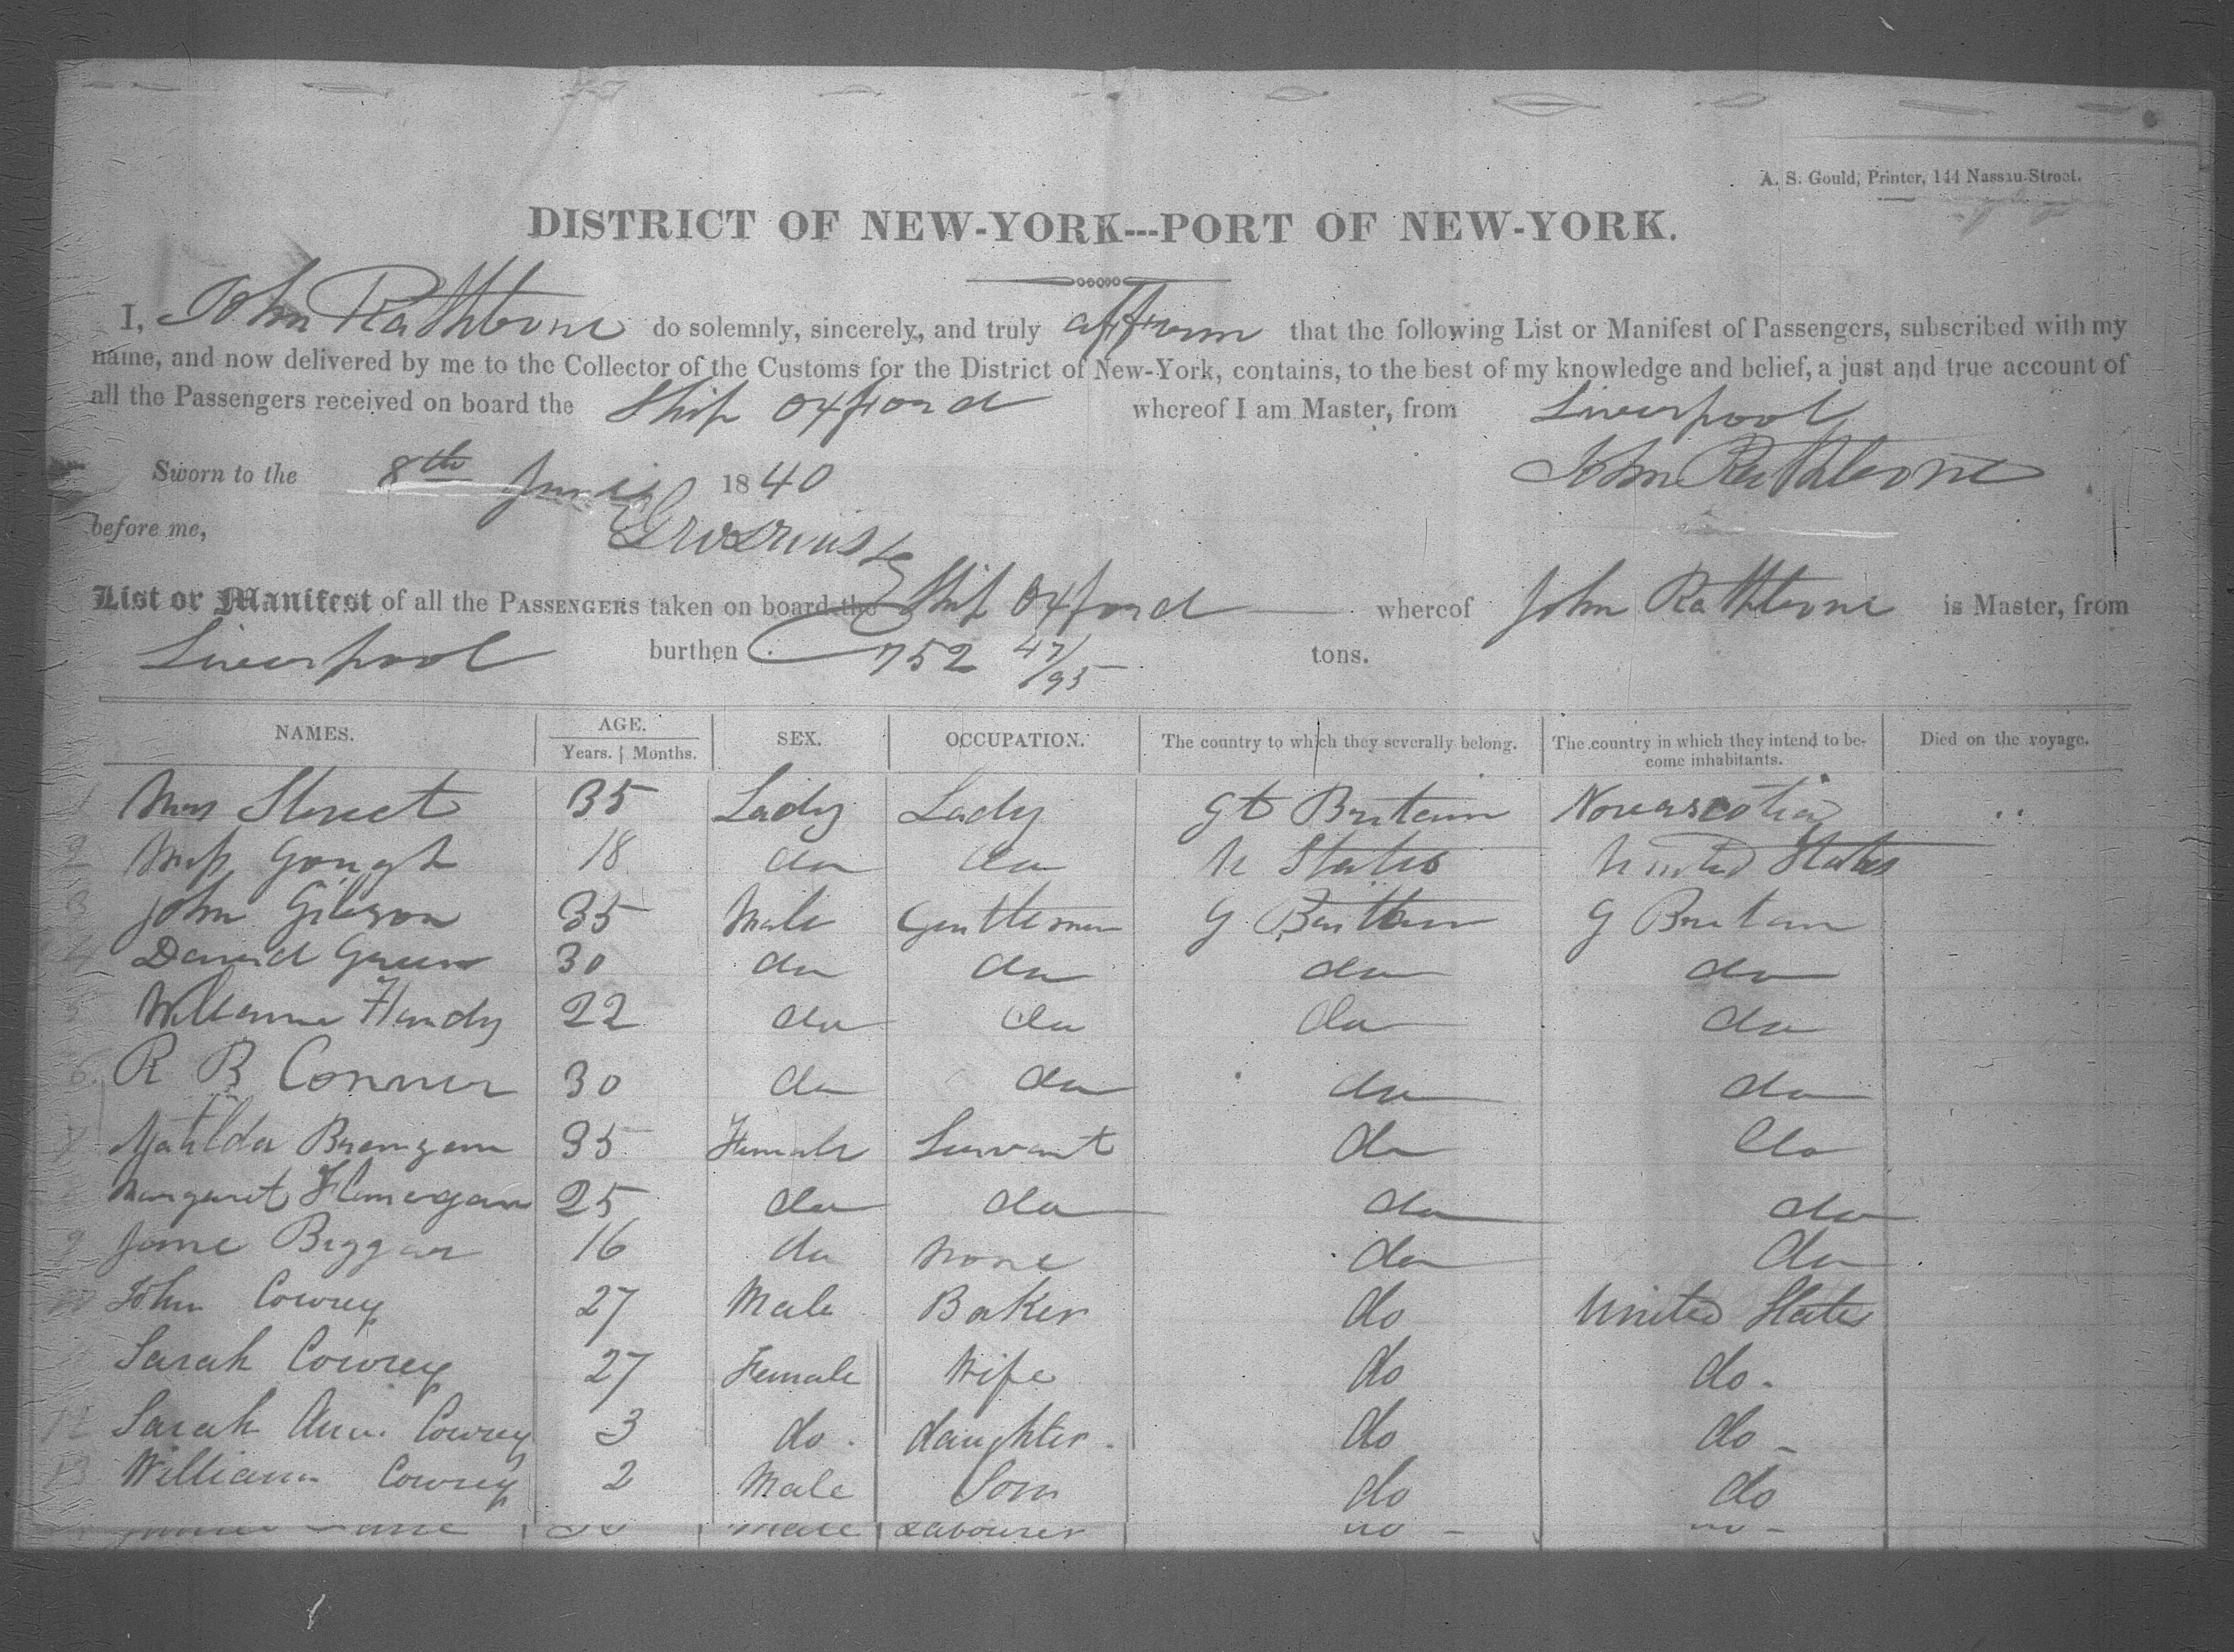 A. S. Gould, Printer, 144 Nassau-Street.
DISTRICT OF NEW-YORK---PORT OF NEW-YORK.
I, John Rathbone do solemnly, sincerely, and truly affirm that the following List or Manifest of Passengers, subscribed with my
name, and now delivered by me to the Collector of the Customs for the District of New-York, contains, to the best of my knowledge and belief, a just and true account of
all the Passengers received on board the Ship Oxford whereof I am Master, from Liverpool
Sworn to the 8th June 1840 John Rathbone
before me,
List or Manifest of all the PASSENGERS taken on board the Ship Oxford whereof John Rathbone is Master, from
Liverpool burthen 752 47/95 tons.
NAMES. AGE. SEX. OCCUPATION. The country to which they severally belong. The country in which they intend to be- Died on the voyage.
Years. Months. come inhabitants.
1 Mrs Street 35 Lady Lady Gt Britain Novascotia
2 Miss Gough 18 do do U States United States
3 John Gibson 35 Male Gentleman G Brittain G Britain
4 David Green 30 do do do do
5 William Handy 22 do do do do
6 R B Connor 30 do do do do
7 Matilda 35 Female Servant do do
Margaret Flanegan 25 do do do do
9 Jane Biggar 16 do None do do
10 John Cowrey 27 Male Baker do United States
Sarah Cowrey 27 Female Wife do do.
12 Sarah Ann Cowrey 3 do. daughter. do do
13 William Cowrey 2 Male Son do do
Male Labourer do do